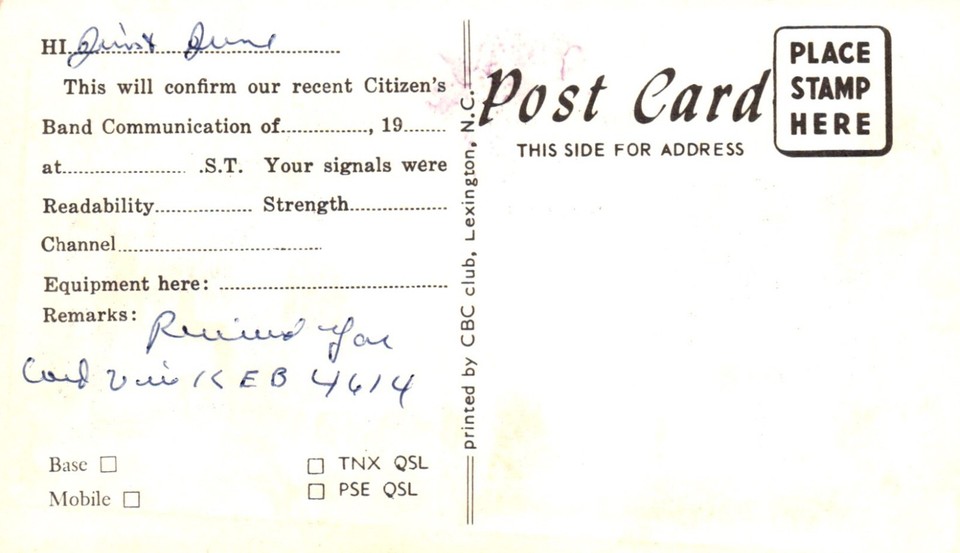 HI
This will confirm our recent Citizen's
Band Communication of.............., 19........
at...................... .S.T. Your signals were
Readability................. Strength.................
Channel....................................
Equipment here: .........................................
Remarks: Received Your
Card Via KEB 4614
Base ☐
Mobile ☐
☐ TNX QSL
☐ PSE QSL
printed by CBC club, Lexington, N.C.
Post Card
THIS SIDE FOR ADDRESS
PLACE
STAMP
HERE